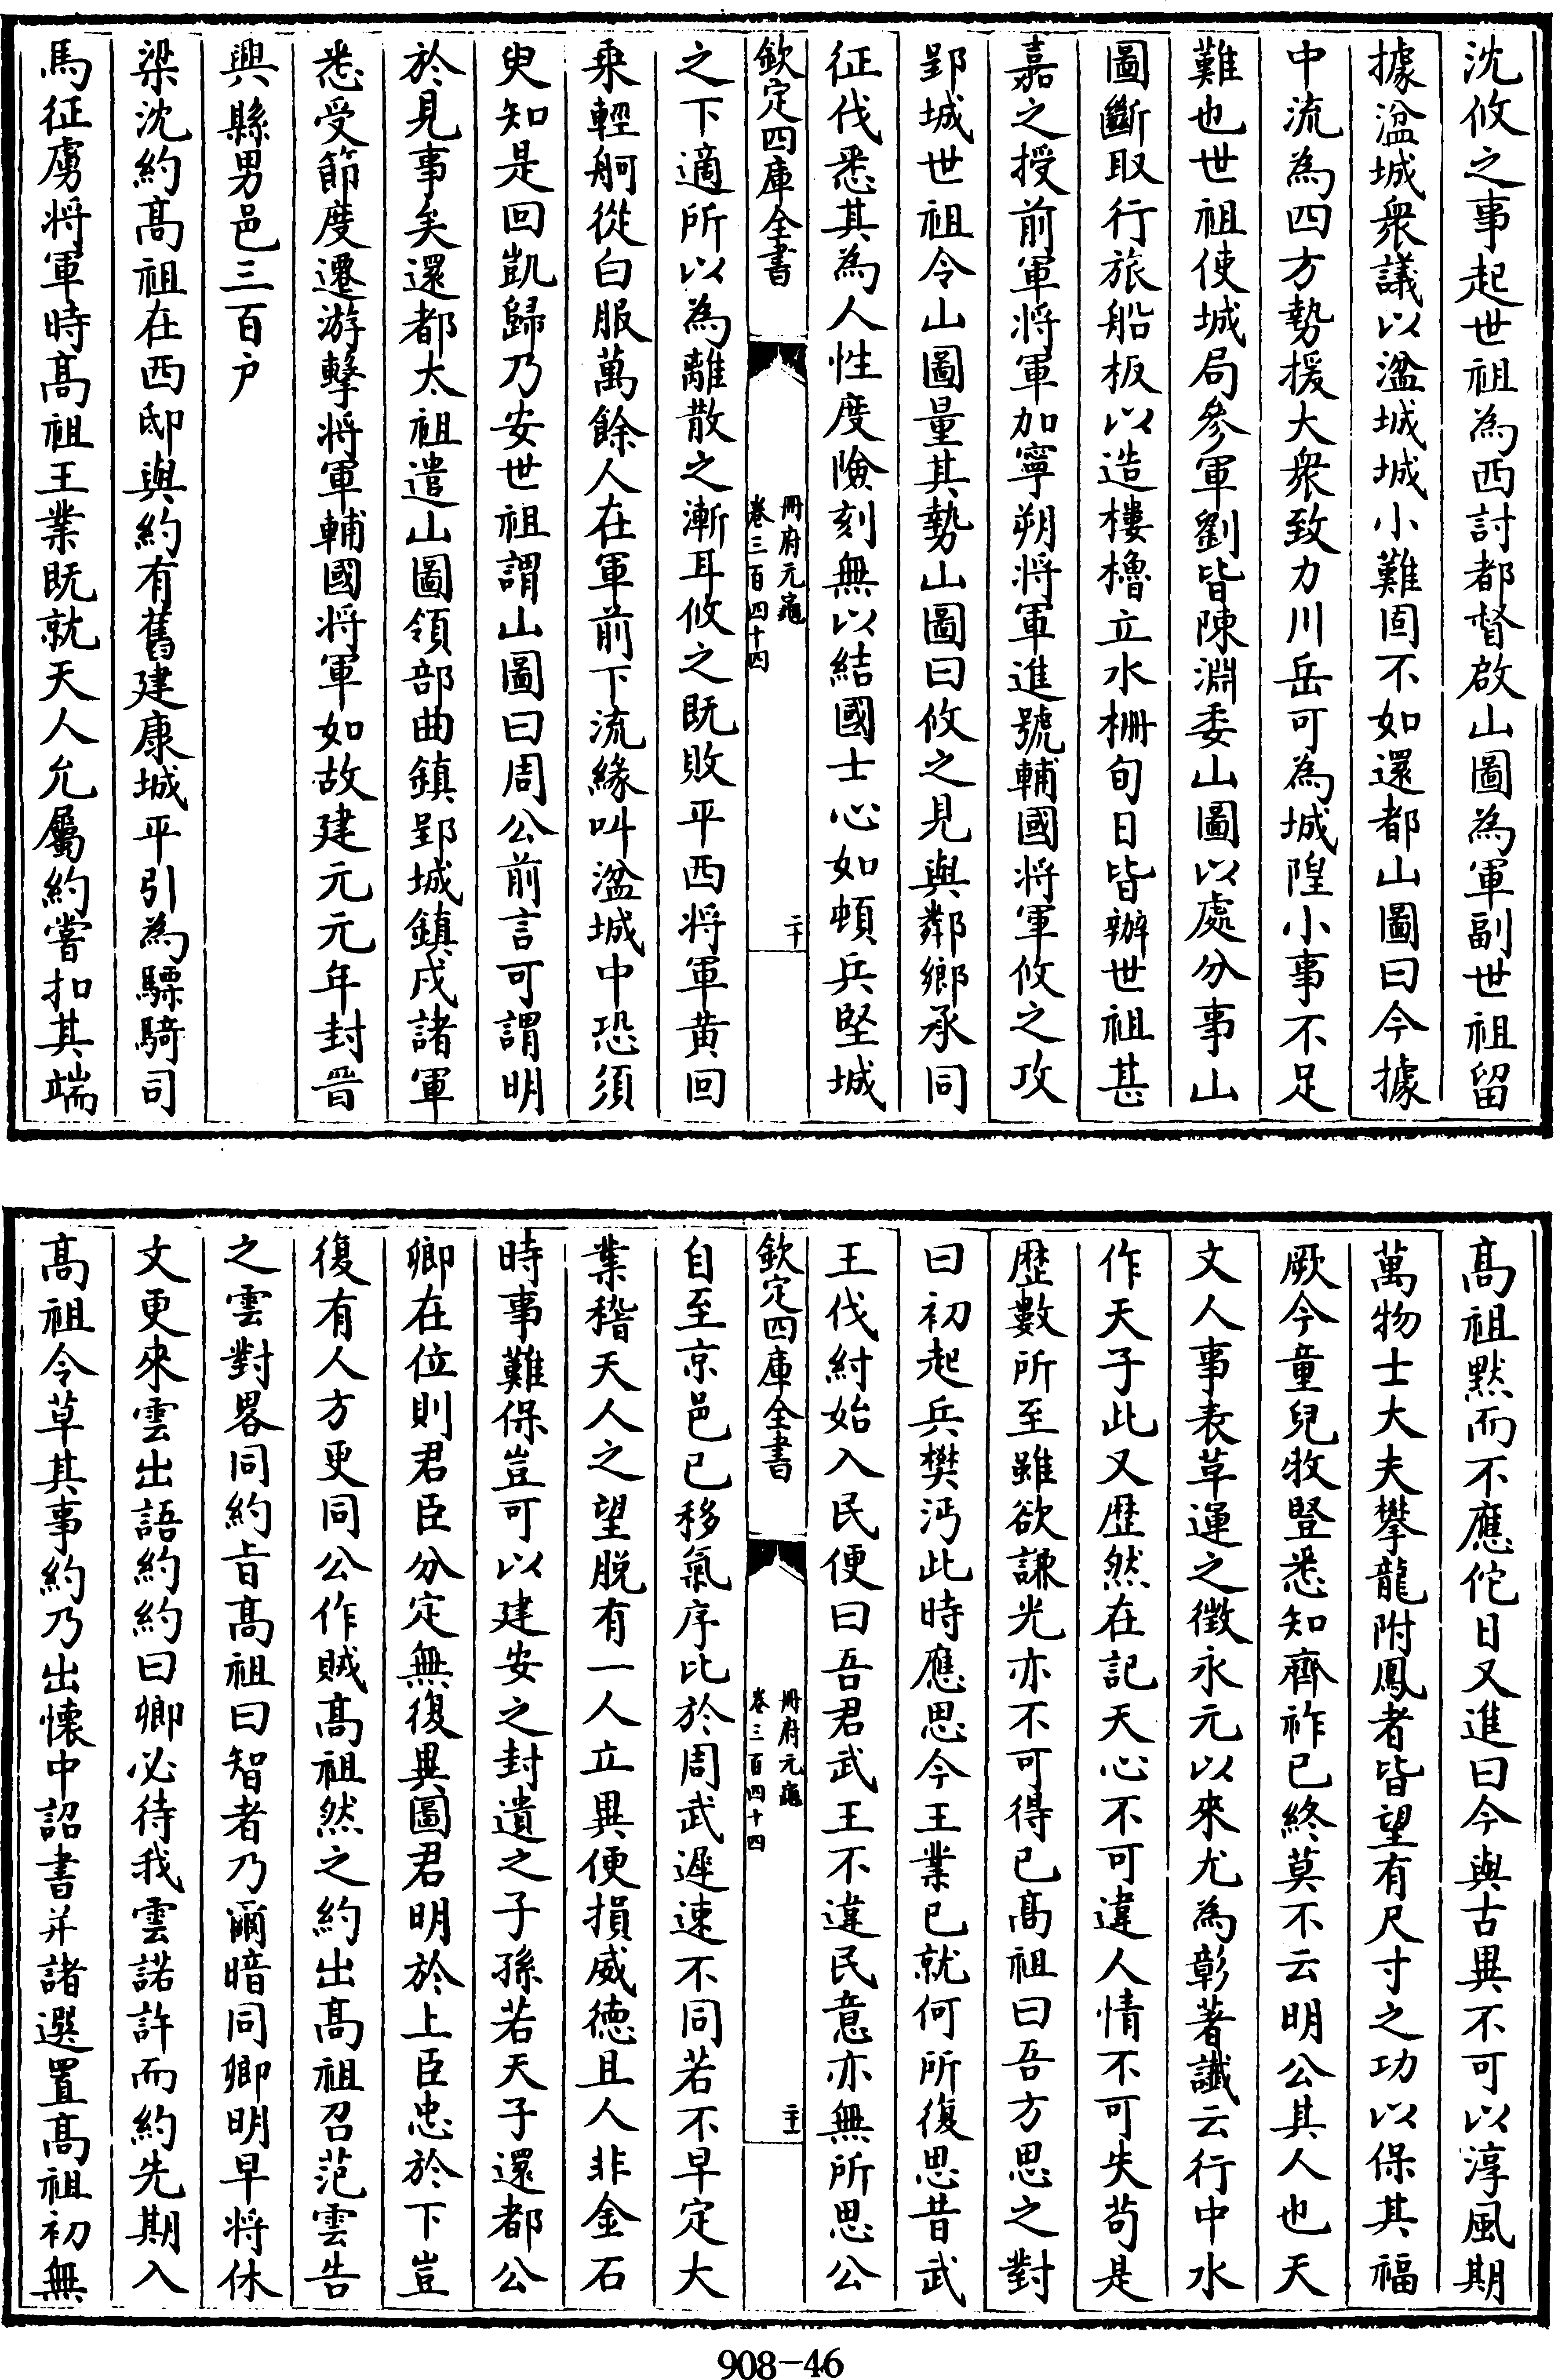 沈攸之事起世祖為西討都督啟山圖為軍副世祖留
據湓城衆議以湓城城小難固不如還都山圖曰今據
中流為四方勢援大衆致力川岳可為城隍小事不足
難也世祖使城局參軍劉皆陳淵委山圖以處分事山
圖斷取行旅船板以造樓櫓立水柵旬日皆辦世祖甚
嘉之授前軍將軍加寧朔將軍進號輔國將軍攸之攻
郢城世祖令山圖量其勢山圖曰攸之見與鄰鄉承同
征伐悉其為人性度險刻無以結國士心如頓兵堅城
欽定四庫全書
冊府元龜
卷三百四十四
二十
之下適所以為離散之漸耳攸之既敗平西將軍黄回
乘輕舸從白服萬餘人在軍前下流緣叫湓城中恐須
臾知是回凱歸乃安世祖謂山圖曰周公前言可謂明
於見事矣還都太祖遣山圖領部曲鎮郢城鎮戍諸軍
悉受節度遷游擊將軍輔國將軍如故建元元年封晉
興縣男邑三百户
梁沈約髙祖在西邸與約有舊建康城平引為驃騎司
馬征虜將軍時髙祖王業既就天人允屬約嘗扣其端
髙祖黙而不應佗日又進曰今與古異不可以淳風期
萬物士大夫攀龍附鳳者皆望有尺寸之功以保其福
厥今童兒牧豎悉知齊祚已終莫不云明公其人也天
文人事表革運之徴永元以來尤為彰著讖云行中水
作天子此又歴然在記天心不可違人情不可失苟是
歴數所至雖欲謙光亦不可得已髙祖曰吾方思之對
曰初起兵樊沔此時應思今王業已就何所復思昔武
王伐紂始入民便曰吾君武王不違民意亦無所思公
欽定四庫全書
冊府元龜
卷三百四十四
二十一
自至京邑已移氣序比於周武遲速不同若不早定大
業稽天人之望脱有一人立異便損威徳且人非金石
時事難保豈可以建安之封遺之子孫若天子還都公
卿在位則君臣分定無復異圖君明於上臣忠於下豈
復有人方更同公作賊髙祖然之約出髙祖召范雲告
之雲對畧同約㫖髙祖曰智者乃爾暗同卿明早將休
文更來雲出語約約曰卿必待我雲諾許而約先期入
髙祖令草其事約乃出懐中詔書并諸選置髙祖初無
908-46